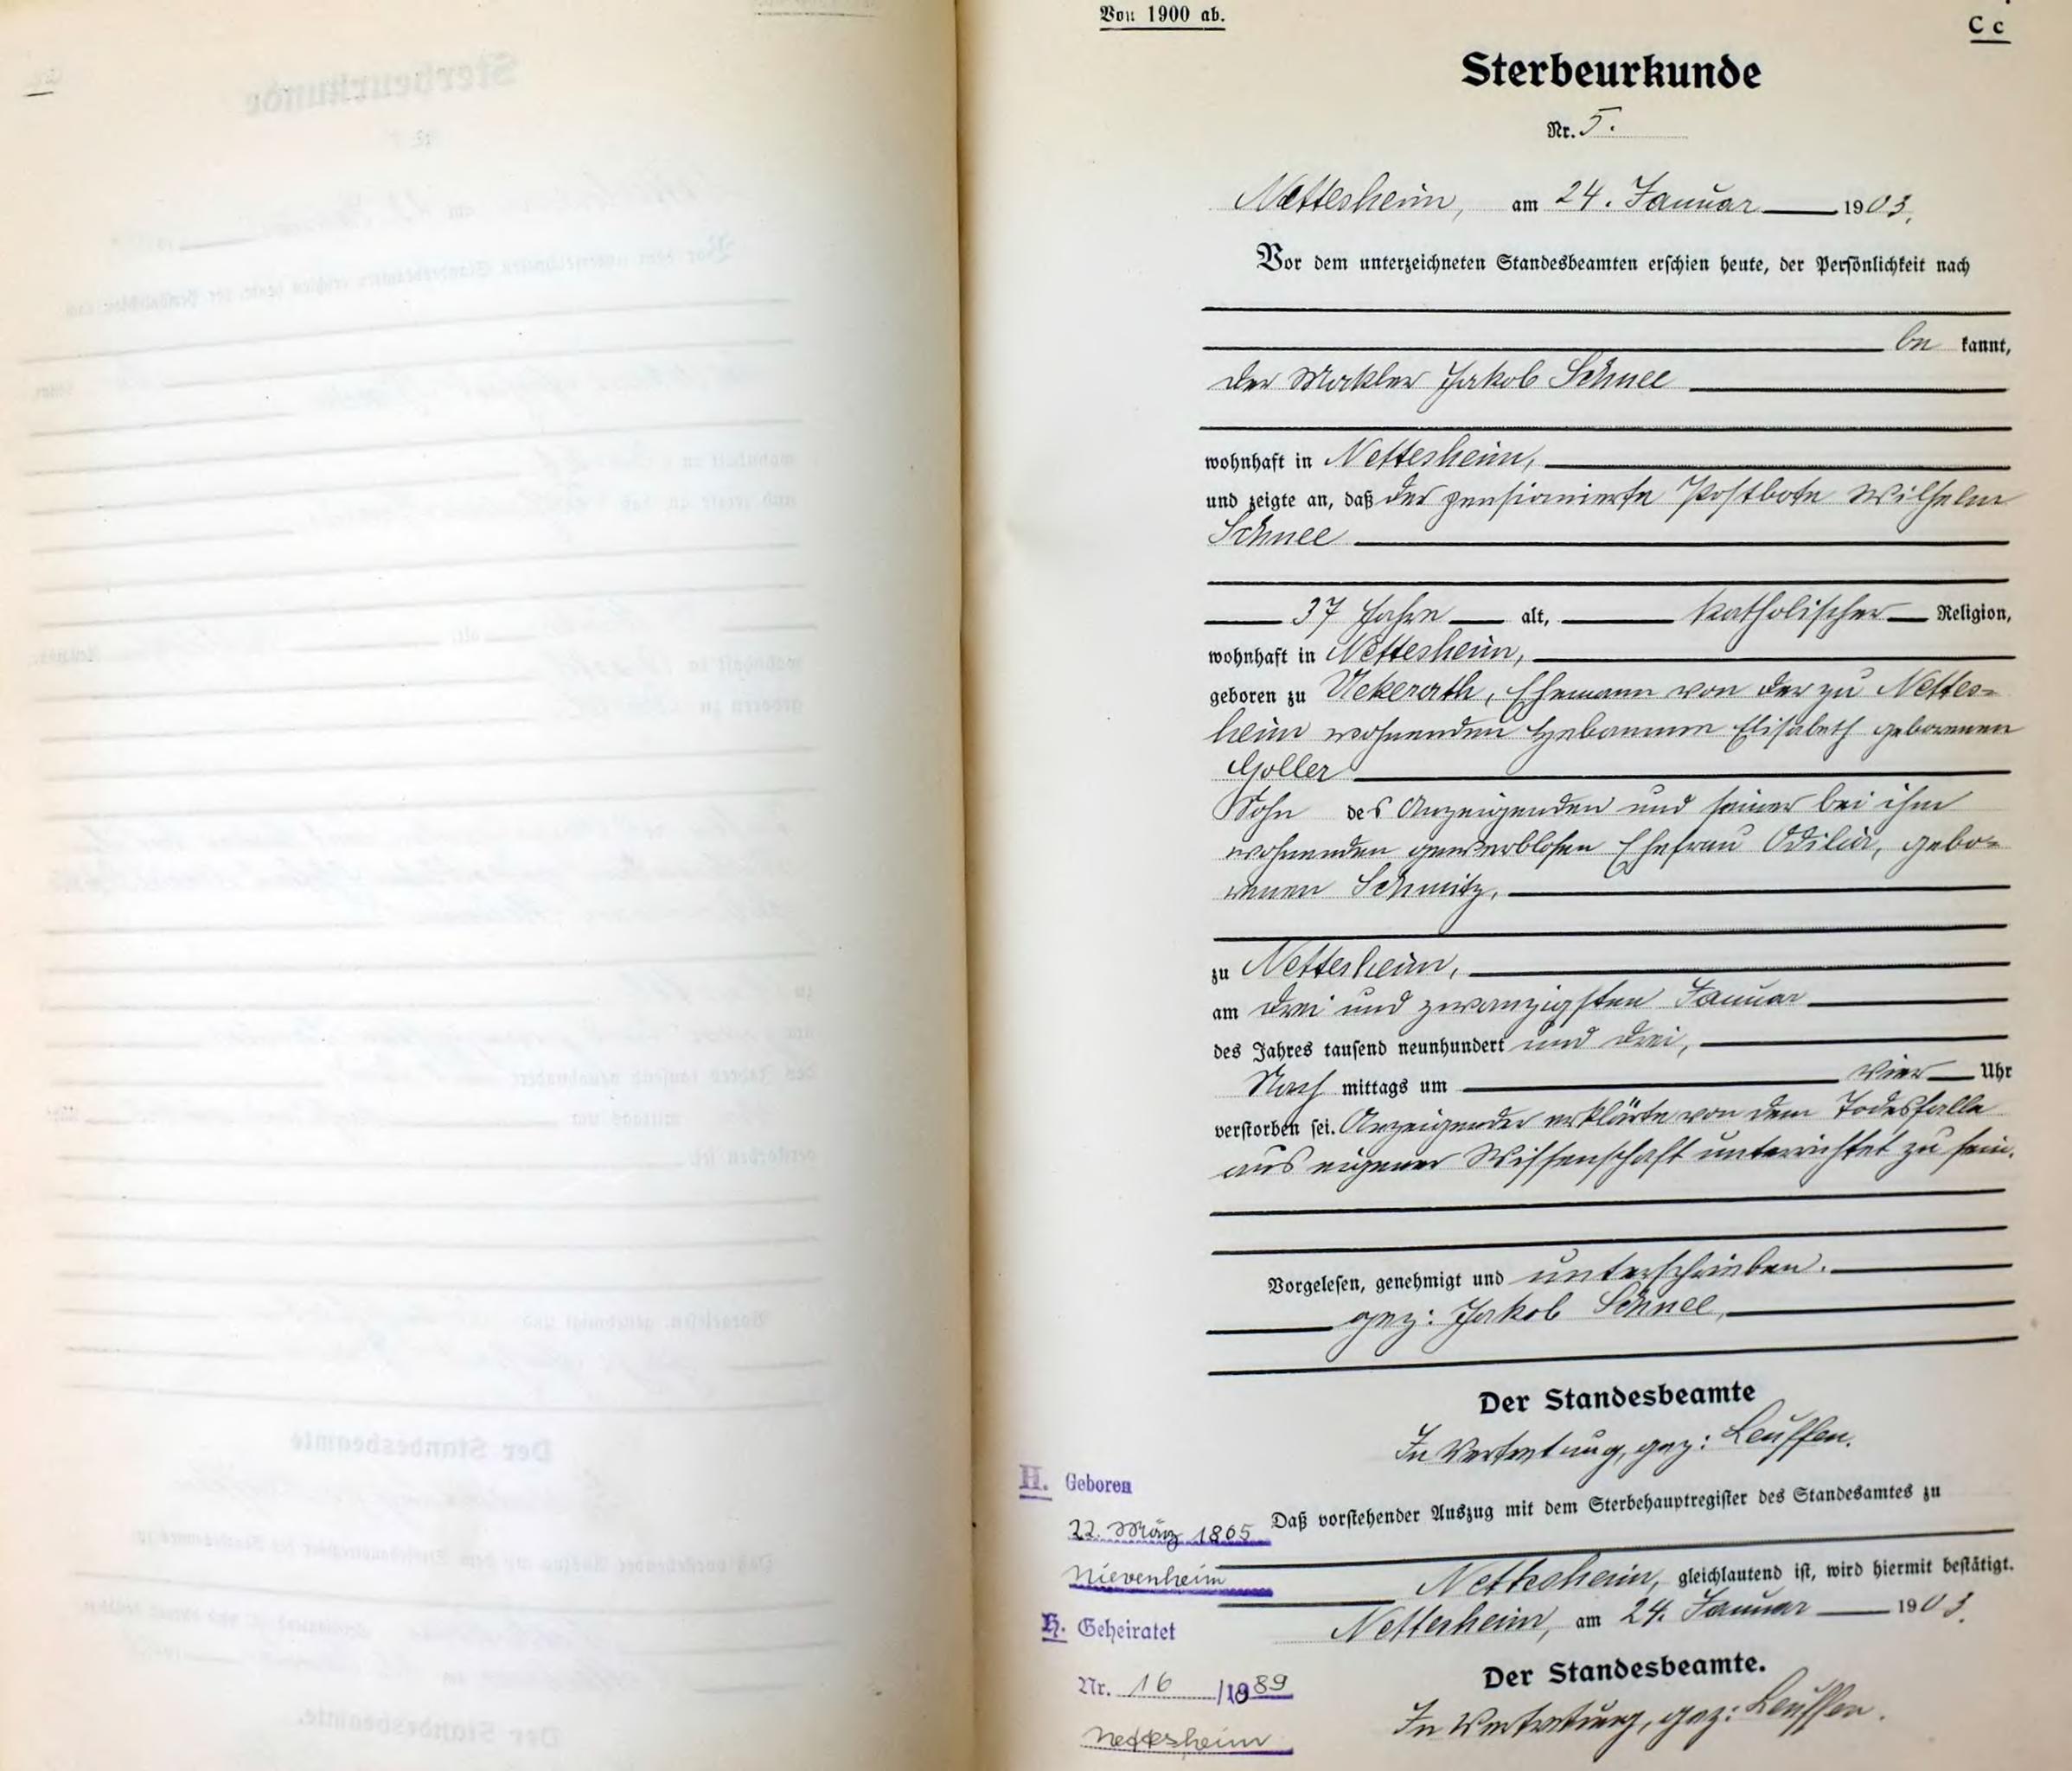 Von 1900 ab.
C c
Sterbeurkunde
Nr. 5.
Nettesheim, am 24. Januar 1903.
Vor dem unterzeichneten Standesbeamten erschien heute, der Persönlichkeit nach
be kannt,
der Makler Jakob Schnee
wohnhaft in Nettesheim,
und zeigte an, daß der pensionierte Postbote Wilhelm
Schnee
37 Jahre alt, katholischer Religion,
wohnhaft in Nettesheim,
geboren zu Uekerath, Ehemann von der zu Nettes-
heim wohnenden Hebamme Elisabeth geborenen
Goller
Sohn des Anzeigenden und seiner bei ihm
wohnenden gewerblosen Ehefrau Odilia, gebo-
renen Schmitz,
zu Nettesheim,
am drei und zwanzigsten Januar
des Jahres tausend neunhundert und drei,
Nach mittags um vier Uhr
verstorben sei. Anzeigender erklärte von dem Todesfalle
aus eigener Wissenschaft unterrichtet zu sein.
Vorgelesen, genehmigt und unterschrieben.
gez: Jakob Schnee,
Der Standesbeamte
In Vertretung, gez: Leuffen.
H. Geboren
22. März 1865
Nievenheim
Daß vorstehender Auszug mit dem Sterbehauptregister des Standesamtes zu
Nettesheim, gleichlautend ist, wird hiermit bestätigt.
Nettesheim, am 24. Januar 1903.
H. Geheiratet
Nr. 16 /1889
Nettesheim
Der Standesbeamte.
In Vertretung, gez: Leuffen.